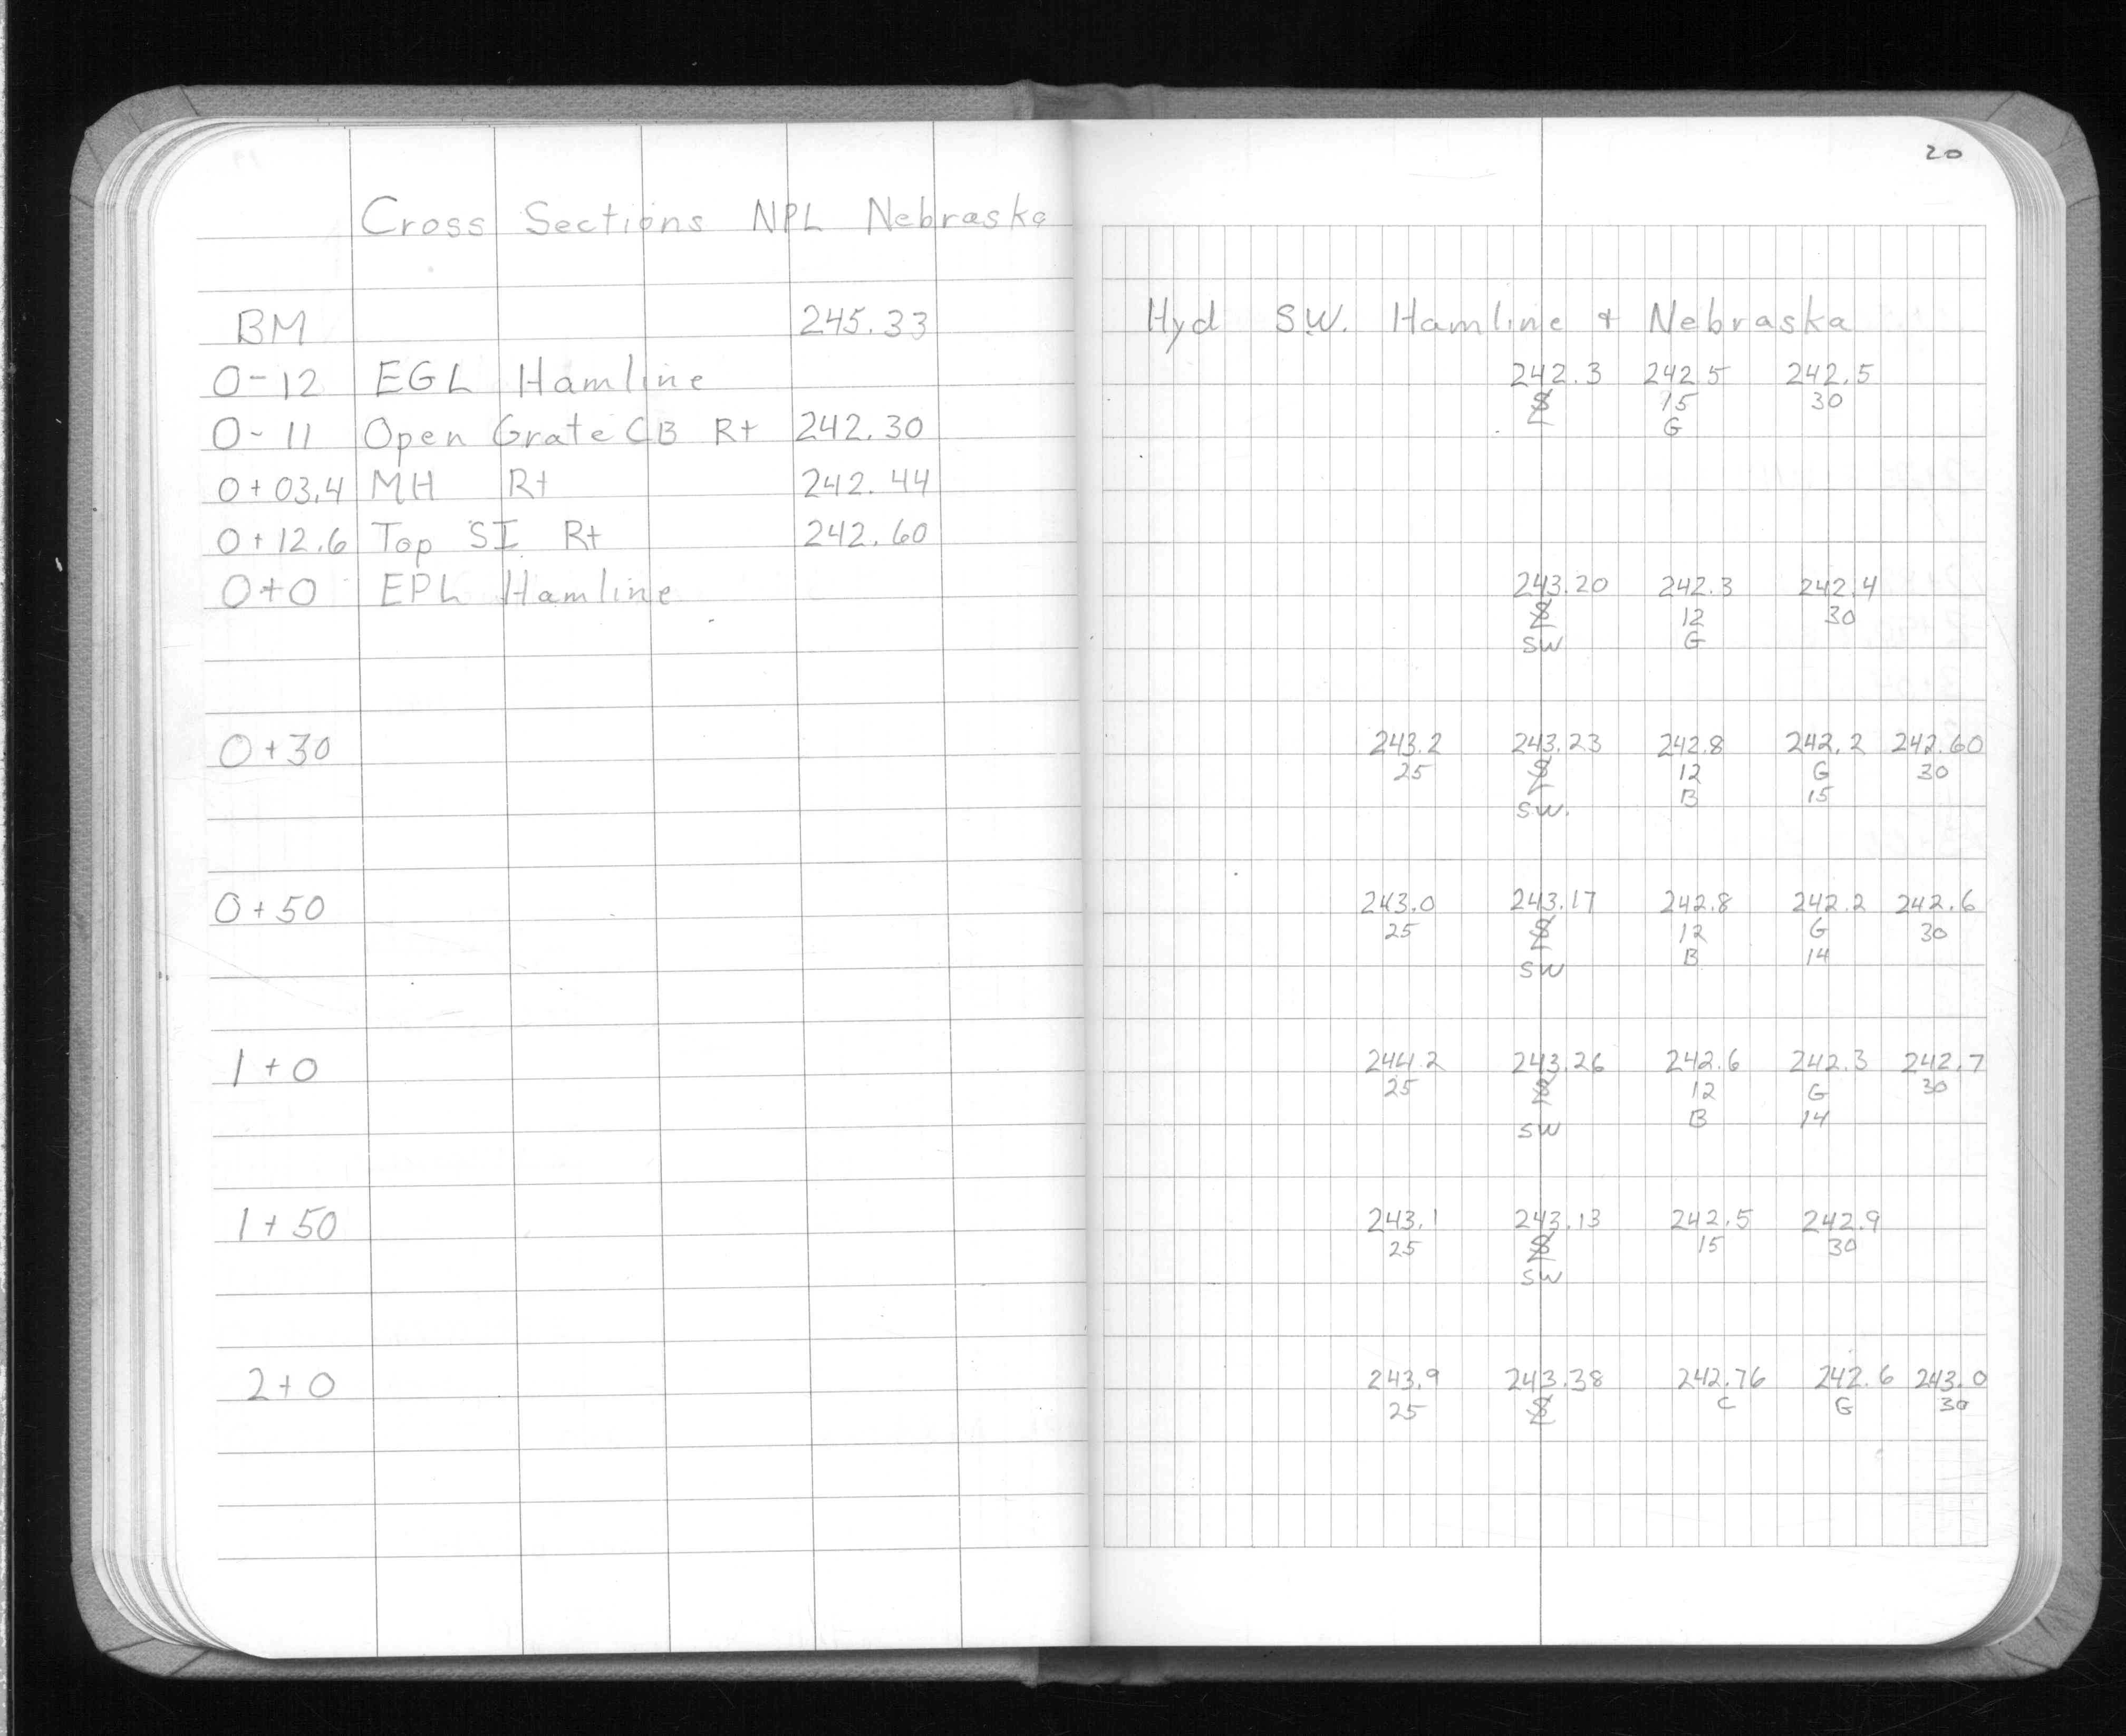 20
Cross Sections NPL Nebraska
BM 245.33 Hyd SW. Hamline + Nebraska
0-12 EGL Hamline 242.3 242.5 242.5
15 30
G
0-11 Open Grate CB Rt 242.30
0+03.4 MH Rt 242.44
0+12.6 Top SI Rt 242.60
0+0 EPL Hamline 243.20 242.3 242.4
12 30
SW G
0+30 243.2 243.23 242.8 242.2 242.60
25 12 G 30
SW. B 15
0+50 243.0 243.17 242.8 242.2 242.6
25 12 G 30
SW B 14
1+0 244.2 243.26 242.6 242.3 242.7
25 12 G 30
SW B 14
1+50 243.1 243.13 242.5 242.9
25 15 30
SW
2+0 243.9 243.38 242.76 242.6 243.0
25 C G 30